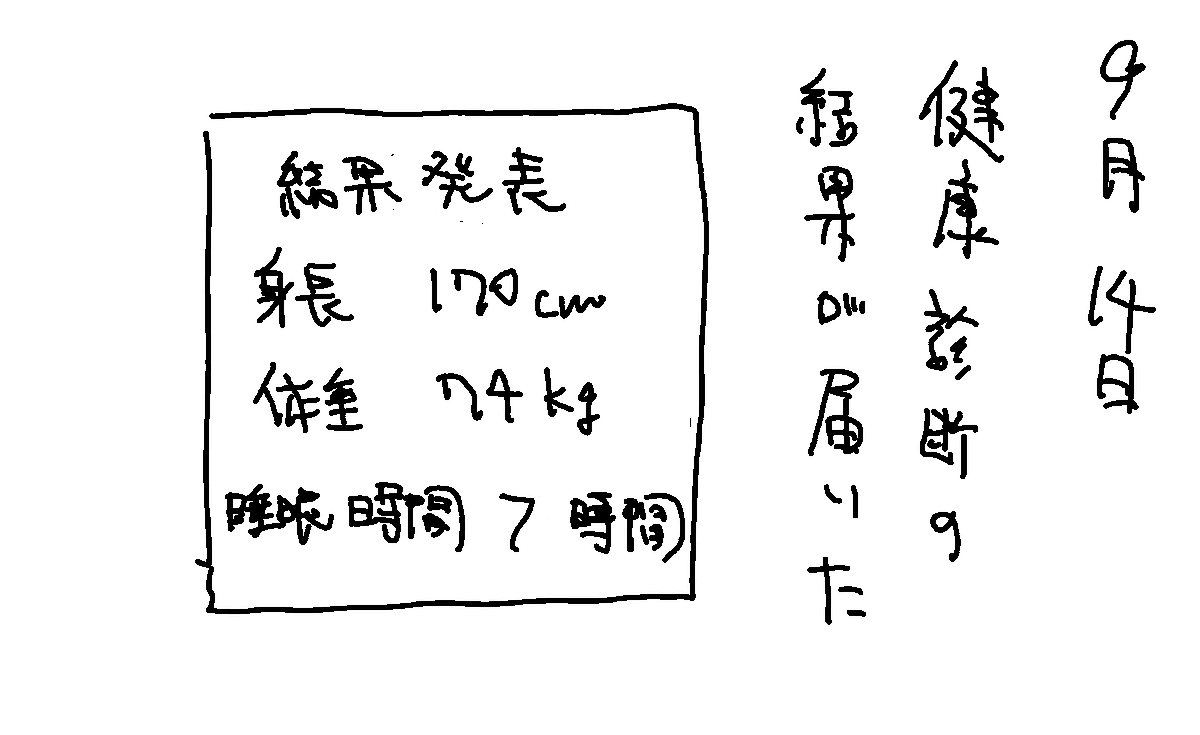 9月14日
健康診断の
結果が届いた
結果発表
身長 170cm
体重 74kg
睡眠時間 7時間